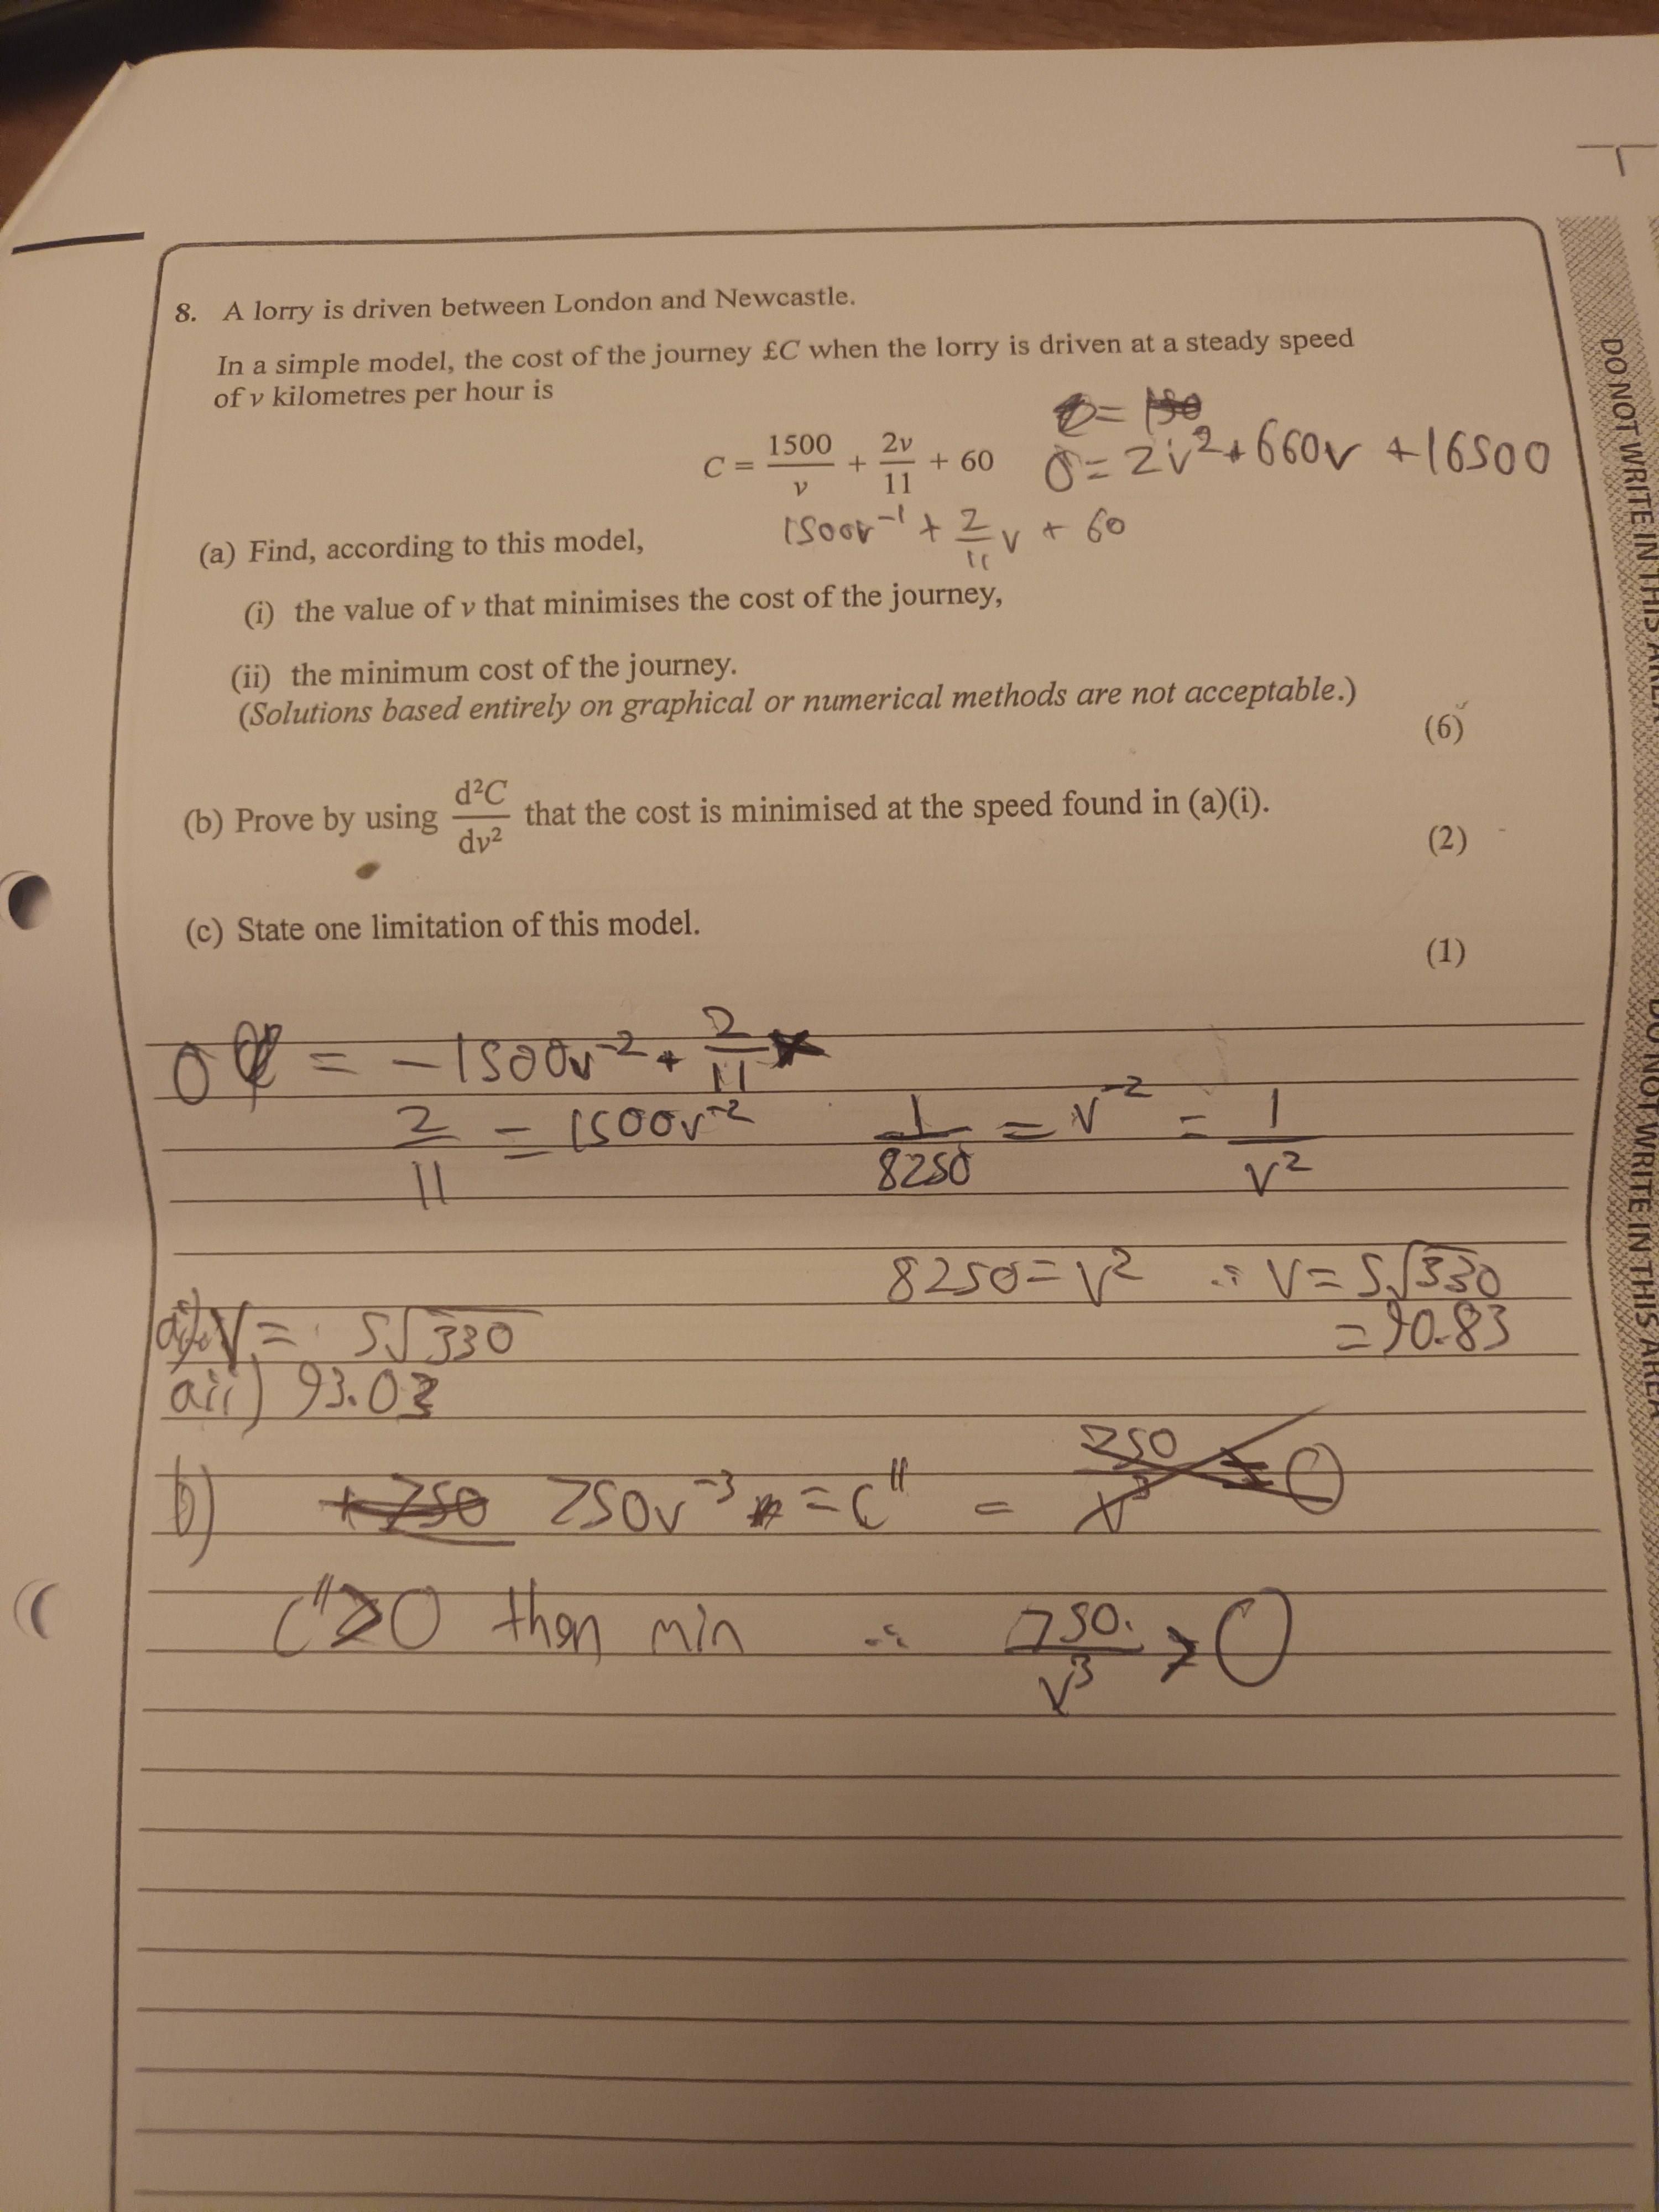 8. A lorry is driven between London and Newcastle.
In a simple model, the cost of the journey £C when the lorry is driven at a steady speed
of v kilometres per hour is
C = 1500/v + 2v/11 + 60
0 = 2v² + 660v + 16500
1500v⁻¹ + 2/11 v + 60
(a) Find, according to this model,
(i) the value of v that minimises the cost of the journey,
(ii) the minimum cost of the journey.
(Solutions based entirely on graphical or numerical methods are not acceptable.)
(6)
(b) Prove by using d²C/dv² that the cost is minimised at the speed found in (a)(i).
(2)
(c) State one limitation of this model.
(1)
0 = -1500v⁻² + 2/11
2/11 = 1500v⁻²
1/8250 = v⁻² = 1/v²
8250 = v² ∴ v = 5√330
= 90.83
ai) v = 5√330
aii) 93.03
b) 750v⁻³ = C'' =
C''>0 then min ∴ 750/v³ > 0
DO NOT WRITE IN THIS AREA
DO NOT WRITE IN THIS AREA